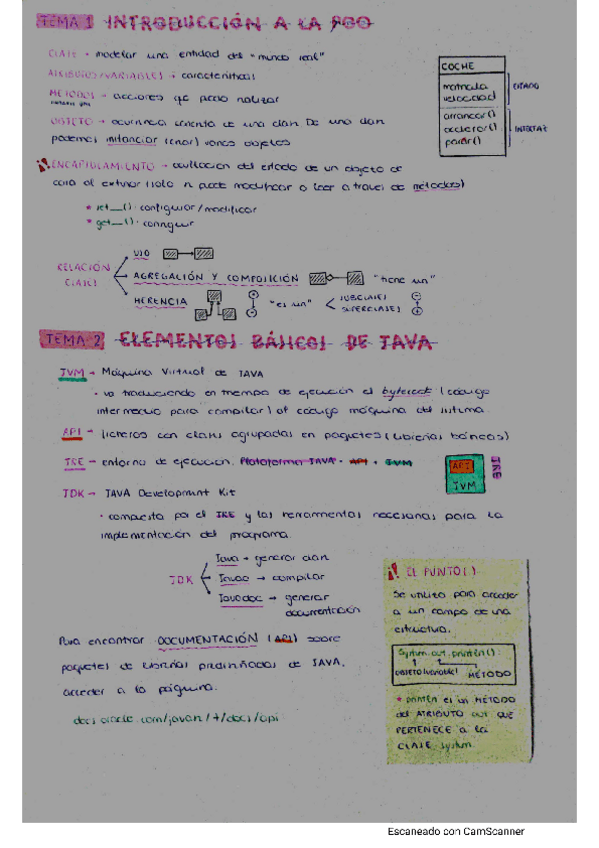 TEMA 1 INTRODUCCIÓN A LA POO
CLASE → modelar una entidad del "mundo real"
ATRIBUTOS/VARIABLES → características
METODOS → acciones que puedo realizar
OBJETO → ocurrencia concreta de una clase. De una clase
podemos instanciar (crear) varios objetos
COCHE
matrícula
velocidad
ESTADO
arrancar()
acelerar()
parar()
INTERFAZ
¡! ENCAPSULAMIENTO → ocultación del estado de un objeto de
cara al exterior (solo se puede modificar o leer a traves de métodos)
* set__(): configurar/modificar
* get__(): conseguir
RELACIÓN
CLASES
USO
AGREGACIÓN Y COMPOSICIÓN "tiene un"
HERENCIA "es un"
SUBCLASES
SUPERCLASES
TEMA 2 ELEMENTOS BÁSICOS DE JAVA
JVM → Máquina Virtual de JAVA
· va traduciendo en tiempo de ejecución el bytecode (código
intermedio para compilar) al código máquina del sistema.
API → ficheros con clases agrupadas en paquetes (librerías básicas)
JRE → entorno de ejecución. Plataforma JAVA = API + JVM
API
JVM
JRE
JDK → JAVA Development Kit
· compuesta por el JRE y las herramientas necesarias para la
implementación del programa.
JDK
Java → generar clases
Javac → compilar
Javadoc → generar
documentación
Para encontrar DOCUMENTACIÓN (API) sobre
paquetes de librerías prediseñadas de JAVA,
acceder a la página:
docs.oracle.com/javase/7/docs/api
¡! EL PUNTO(.)
Se utiliza para acceder
a un campo de una
estructura.
System.out.println():
OBJETO(variable) MÉTODO
* println es un MÉTODO
del ATRIBUTO out QUE
PERTENECE a la
CLASE System.
Escaneado con CamScanner